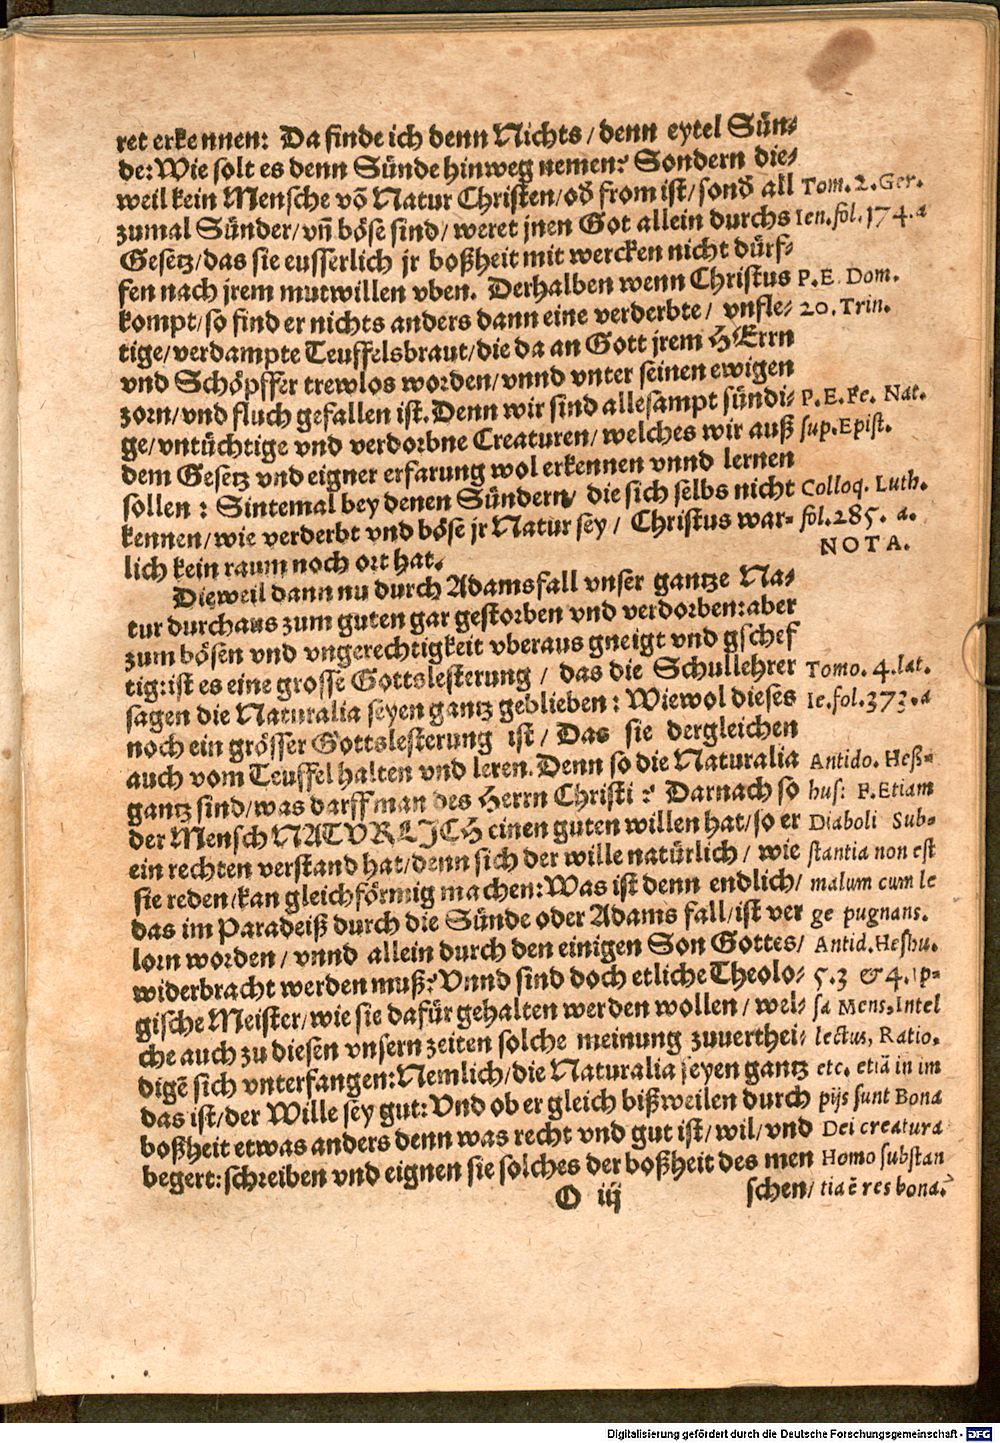 ret erkennen: Da finde ich denn Nichts/ denn eytel Sün⸗
de: Wie solt es denn Sünde hinweg nemen? Sondern die⸗
weil kein Mensche võ Natur Christen/ od̃ from ist/ sond̃ all
zumal Sünder/ vñ böse sind/ weret jnen Got allein durchs
Gesetz/ das sie eusserlich jr boßheit mit wercken nicht dürf⸗
fen nach jrem mutwillen vben. Derhalben wenn Christus
kompt/ so find er nichts anders dann eine verderbte/ vnfle⸗
tige/ verdampte Teuffelsbraut/ die da an Gott jrem HErrn
vnd Schöpffer trewlos worden/ vnnd vnter seinen ewigen
zorn/ vnd fluch gefallen ist. Denn wir sind allesampt sündi⸗
ge/ vntüchtige vnd verdorbne Creaturen/ welches wir auß
dem Gesetz vnd eigner erfarung wol erkennen vnnd lernen
sollen: Sintemal bey denen Sündern/ die sich selbs nicht
kennen/ wie verderbt vnd böse jr Natur sey/ Christus war⸗
lich kein raum noch ort hat.
Dieweil dann nu durch Adams fall vnser gantze Na⸗
tur durchaus zum guten gar gestorben vnd verdorben: aber
zum bösen vnd vngerechtigkeit vberaus gneigt vnd gschef
tig: ist es eine grosse Gottslesterung/ das die Schullehrer
sagen die Naturalia seyen gantz geblieben: Wiewol dieses
noch ein grösser Gottslesterung ist/ Das sie dergleichen
auch vom Teuffel halten vnd leren. Denn so die Naturalia
gantz sind/ was darff man des Herrn Christi? Darnach so
der Mensch NATVRLICH einen guten willen hat/ so er
ein rechten verstand hat/ denn sich der wille natürlich/ wie
sie reden/ kan gleichförmig machen: Was ist denn endlich/
das im Paradeiß durch die Sünde oder Adams fall/ ist ver
lorn worden/ vnnd allein durch den einigen Son Gottes/
widerbracht werden muß? Vnnd sind doch etliche Theolo⸗
gische Meister/ wie sie dafür gehalten werden wollen/ wel⸗
che auch zu diesen vnsern zeiten solche meinung zuuerthei⸗
digẽ sich vnterfangen: Nemlich/ die Naturalia seyen gantz
das ist/ der Wille sey gut: Vnd ob er gleich bißweilen durch
boßheit etwas anders denn was recht vnd gut ist/ wil/ vnd
begert: schreiben vnd eignen sie solches der boßheit des men
O iij
schen/
Tom. 2. Ger.
Ien. fol. 174. a
P. E. Dom.
20. Trin.
P. E. Fe. Nat.
sup. Epist.
Colloq. Luth.
fol. 285. a.
NOTA.
Tomo. 4. lat.
Ie. fol. 373. a
Antido. Heß⸗
hus: P. Etiam
Diaboli Sub⸗
stantia non est
malum cum le
ge pugnans.
Antid. Heshu.
5. 3 & 4. Ip⸗
sa Mens, Intel
lectus, Ratio.
etc. etiã in im
pijs sunt Bona
Dei creatura
Homo substan
tia ẽ res bona.
Digitalisierung gefördert durch die Deutsche Forschungsgemeinschaft - DFG